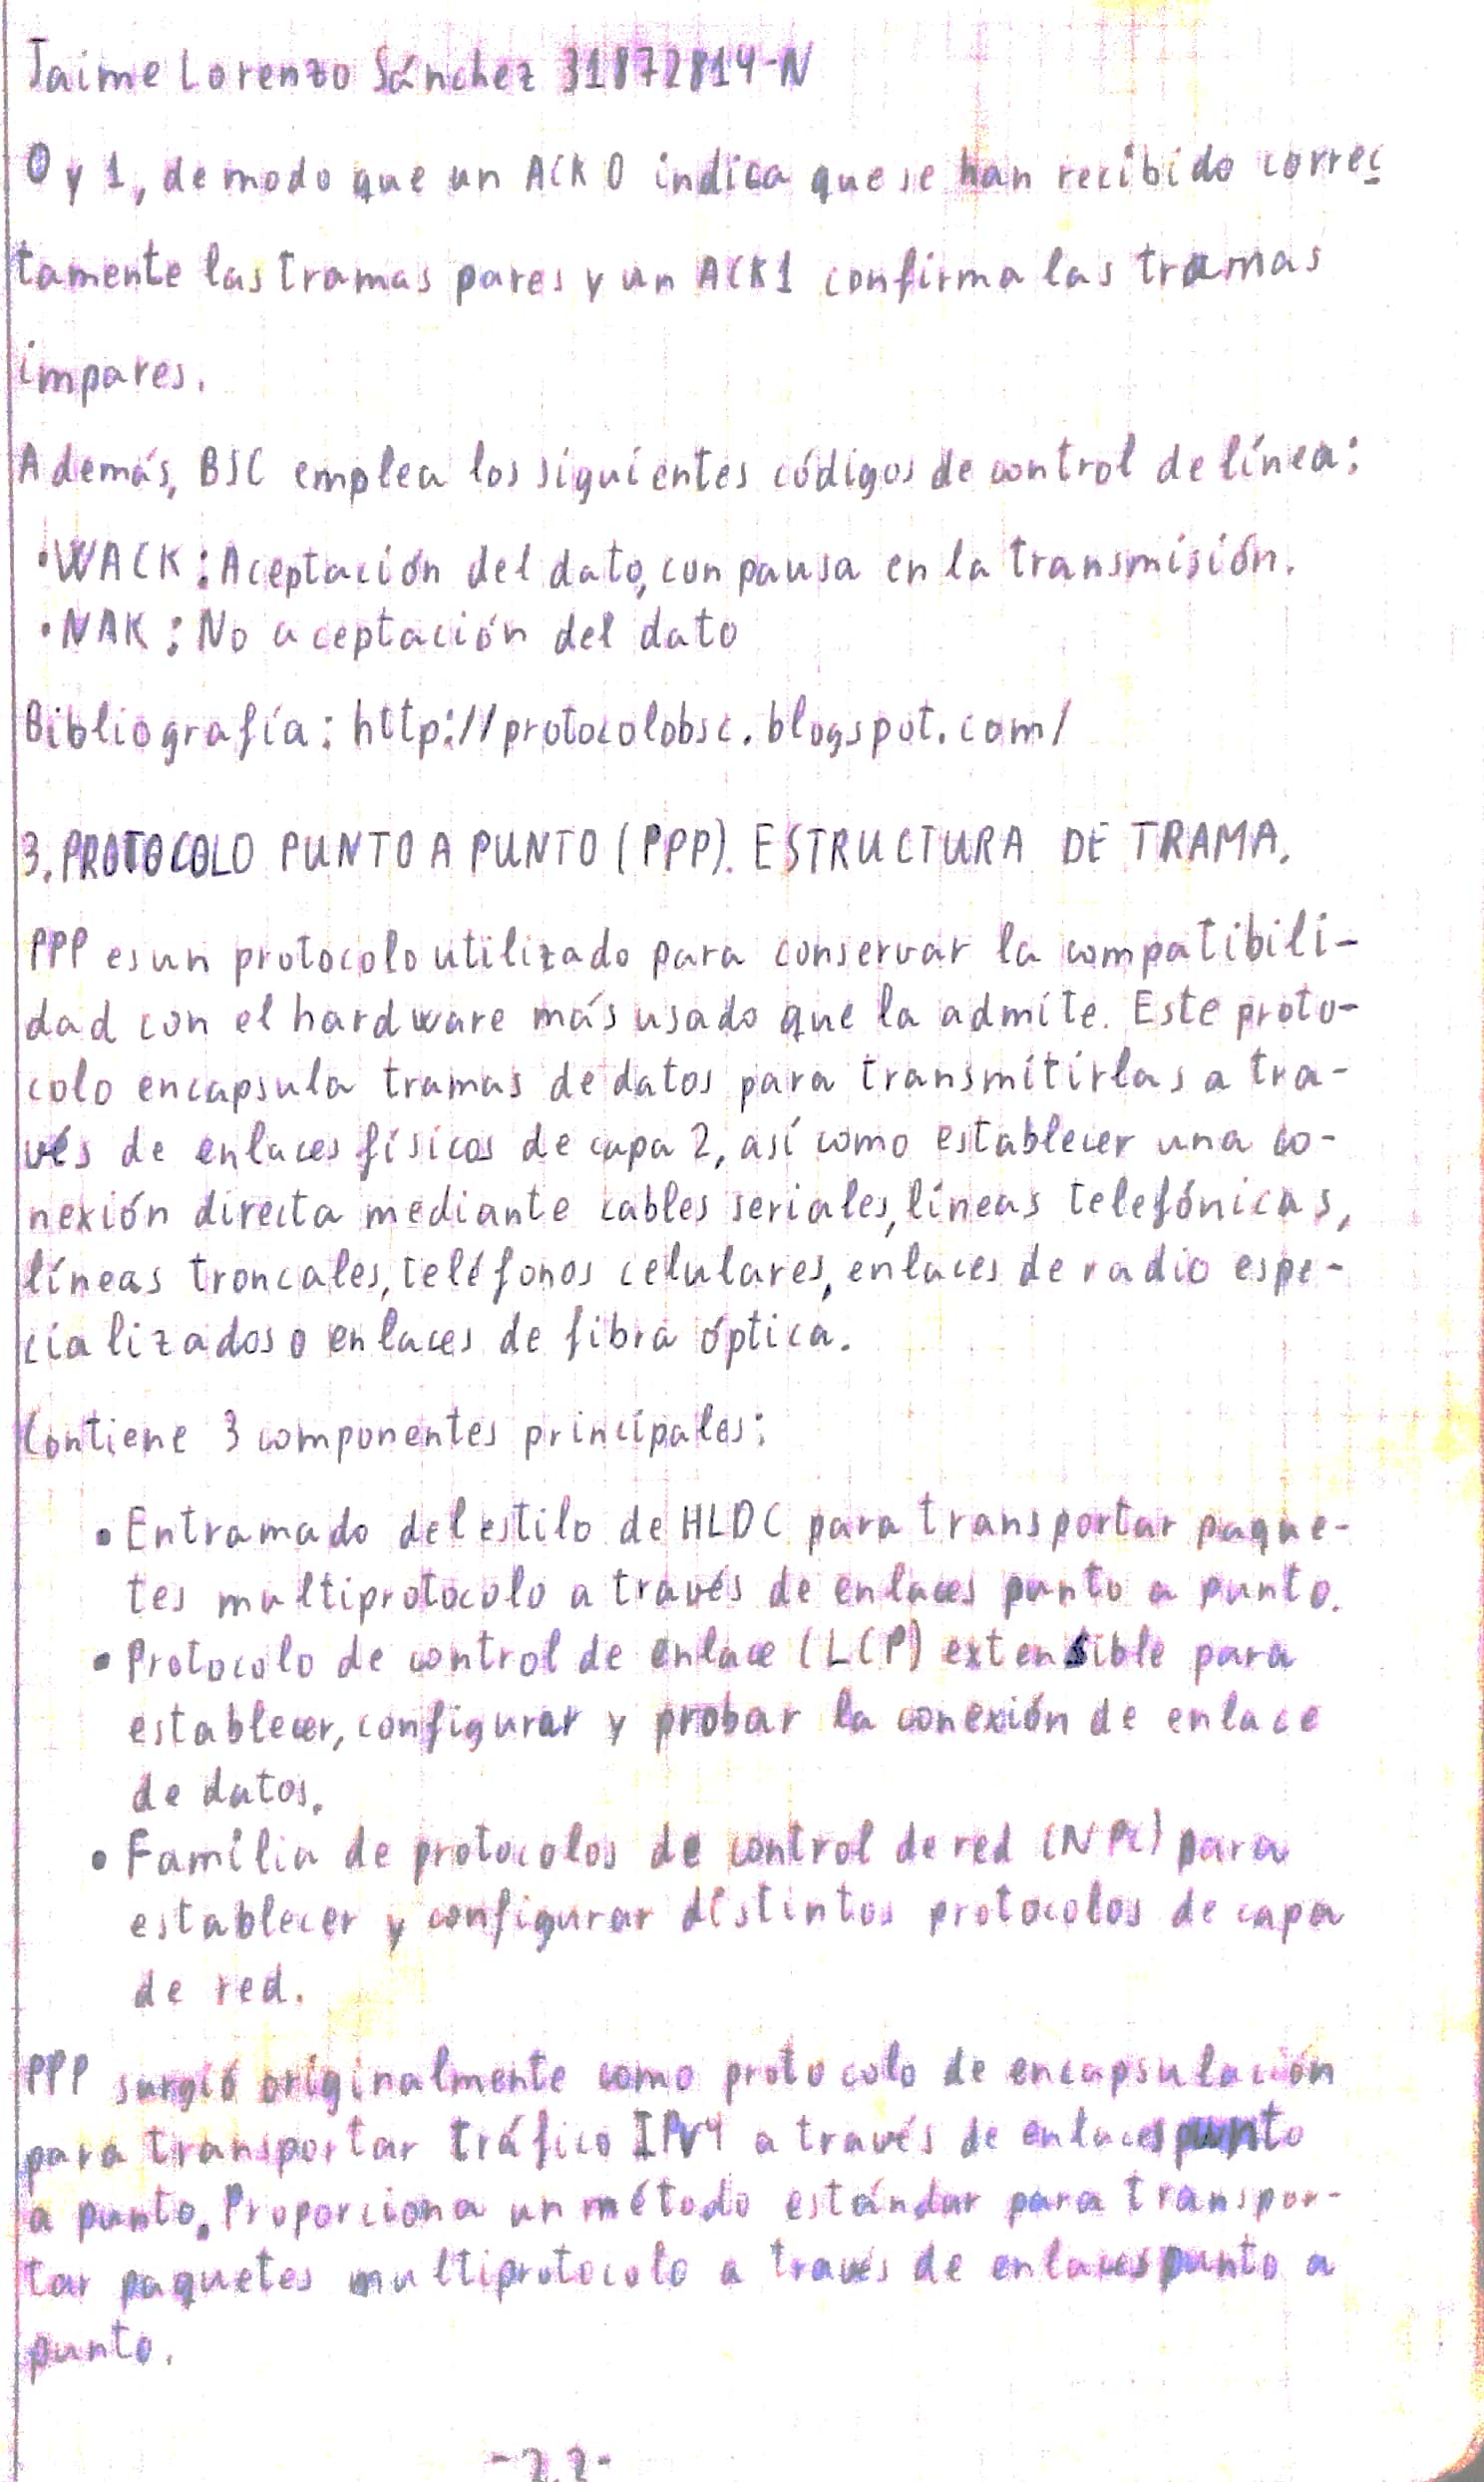 Jaime Lorenzo Sánchez 31872814-N
0 y 1, de modo que un ACK 0 indica que se han recibido correc
tamente las tramas pares y un ACK1 confirma las tramas
impares.
Además, BSC emplea los siguientes códigos de control de línea:
•WACK: Aceptación del dato, con pausa en la transmisión.
•NAK: No aceptación del dato
Bibliografía: http://protocolobsc.blogspot.com/
3. PROTOCOLO PUNTO A PUNTO (PPP). ESTRUCTURA DE TRAMA.
PPP es un protocolo utilizado para conservar la compatibili-
dad con el hardware más usado que la admite. Este proto-
colo encapsula tramas de datos para transmitirlas a tra-
vés de enlaces físicos de capa 2, así como establecer una co-
nexión directa mediante cables seriales, líneas telefónicas,
líneas troncales, teléfonos celulares, enlaces de radio espe-
cializados o enlaces de fibra óptica.
Contiene 3 componentes principales:
• Entramado del estilo de HLDC para transportar paque-
tes multiprotocolo a través de enlaces punto a punto.
• Protocolo de control de enlace (LCP) extensible para
establecer, configurar y probar la conexión de enlace
de datos.
• Familia de protocolos de control de red (NPC) para
establecer y configurar distintos protocolos de capa
de red.
PPP surgió originalmente como protocolo de encapsulación
para transportar tráfico IPv4 a través de enlaces punto
a punto. Proporciona un método estándar para transpor-
tar paquetes multiprotocolo a través de enlaces punto a
punto.